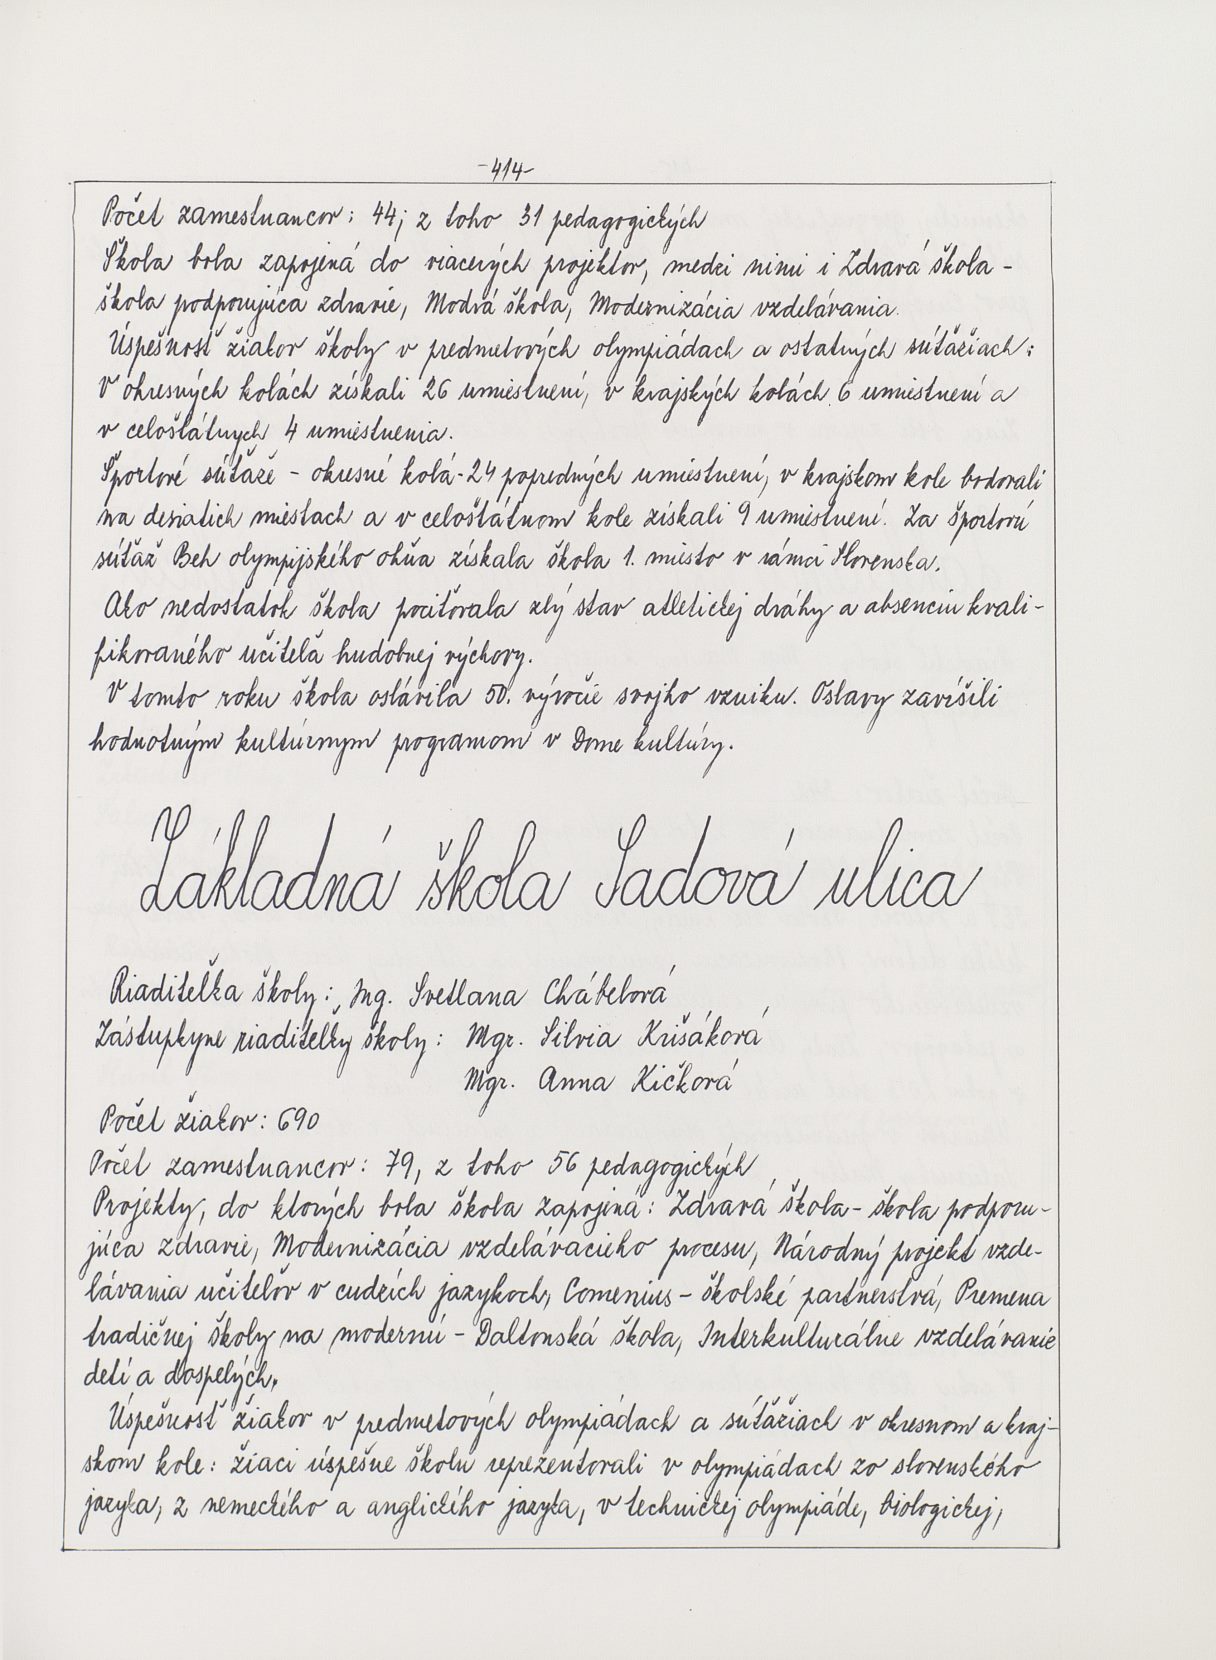 -414-
Počet zamestnancov: 44; z toho 31 pedagogických
Škola bola zapojená do viacerých projektov, medzi nimi i Zdravá škola -
škola podporujúca zdravie, Modrá škola, Modernizácia vzdelávania.
Úspešnosť žiakov školy v predmetových olympiádach a ostatných súťažiach:
V okresných kolách získali 26 umiestnení, v krajských kolách 6 umiestnení a
v celoštátnych 4 umiestnenia.
Športové súťaže - okresné kolá - 24 popredných umiestnení, v krajskom kole bodovali
na desiatich miestach a v celoštátnom kole získali 9 umiestnení. Za športovú
súťaž Beh olympijského ohňa získala škola 1. miesto v rámci Slovenska.
Ako nedostatok škola pociťovala zlý stav atletickej dráhy a absenciu kvali-
fikovaného učiteľa hudobnej výchovy.
V tomto roku škola oslávila 50. výročie svojho vzniku. Oslavy zavŕšili
hodnotným kultúrnym programom v Dome kultúry.
Základná škola Sadová ulica
Riaditeľka školy: Ing. Svetlana Chábelová
Zástupkyne riaditeľky školy: Mgr. Silvia Krišáková
Mgr. Anna Kičková
Počet žiakov: 690
Počet zamestnancov: 79, z toho 56 pedagogických
Projekty, do ktorých bola škola zapojená: Zdravá škola - škola podporu-
júca zdravie, Modernizácia vzdelávacieho procesu, Národný projekt vzde-
lávania učiteľov v cudzích jazykoch, Comenius - školské partnerstvá, Premena
tradičnej školy na modernú - Daltonská škola, Interkulturálne vzdelávanie
detí a dospelých.
Úspešnosť žiakov v predmetových olympiádach a súťažiach v okresnom a kraj-
skom kole: žiaci úspešne školu reprezentovali v olympiádach zo slovenského
jazyka, z nemeckého a anglického jazyka, v technickej olympiáde, biologickej,